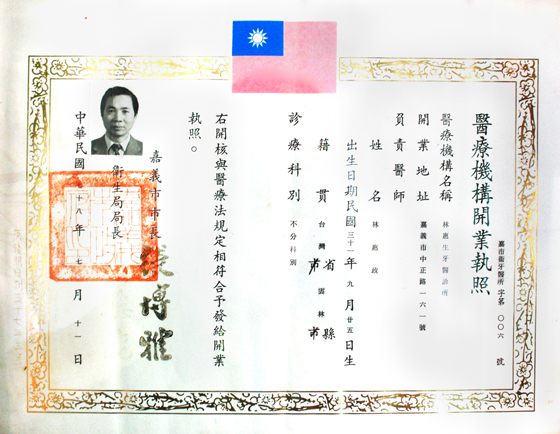 醫療機構開業執照
嘉市衛牙醫所字第〇〇六號
醫療機構名稱 林惠生牙醫診所
開業地址 嘉義市中正路一六一號
負責醫師
姓名 林惠政
出生日期民國三十一年九月廿五日生
籍貫 台灣省市雲林縣市
診療科別 不分科別
右開核與醫療法規定相符合予發給開業
執照。
嘉義市市長 張博雅
衛生局局長
中華民國 十八年七月十一日